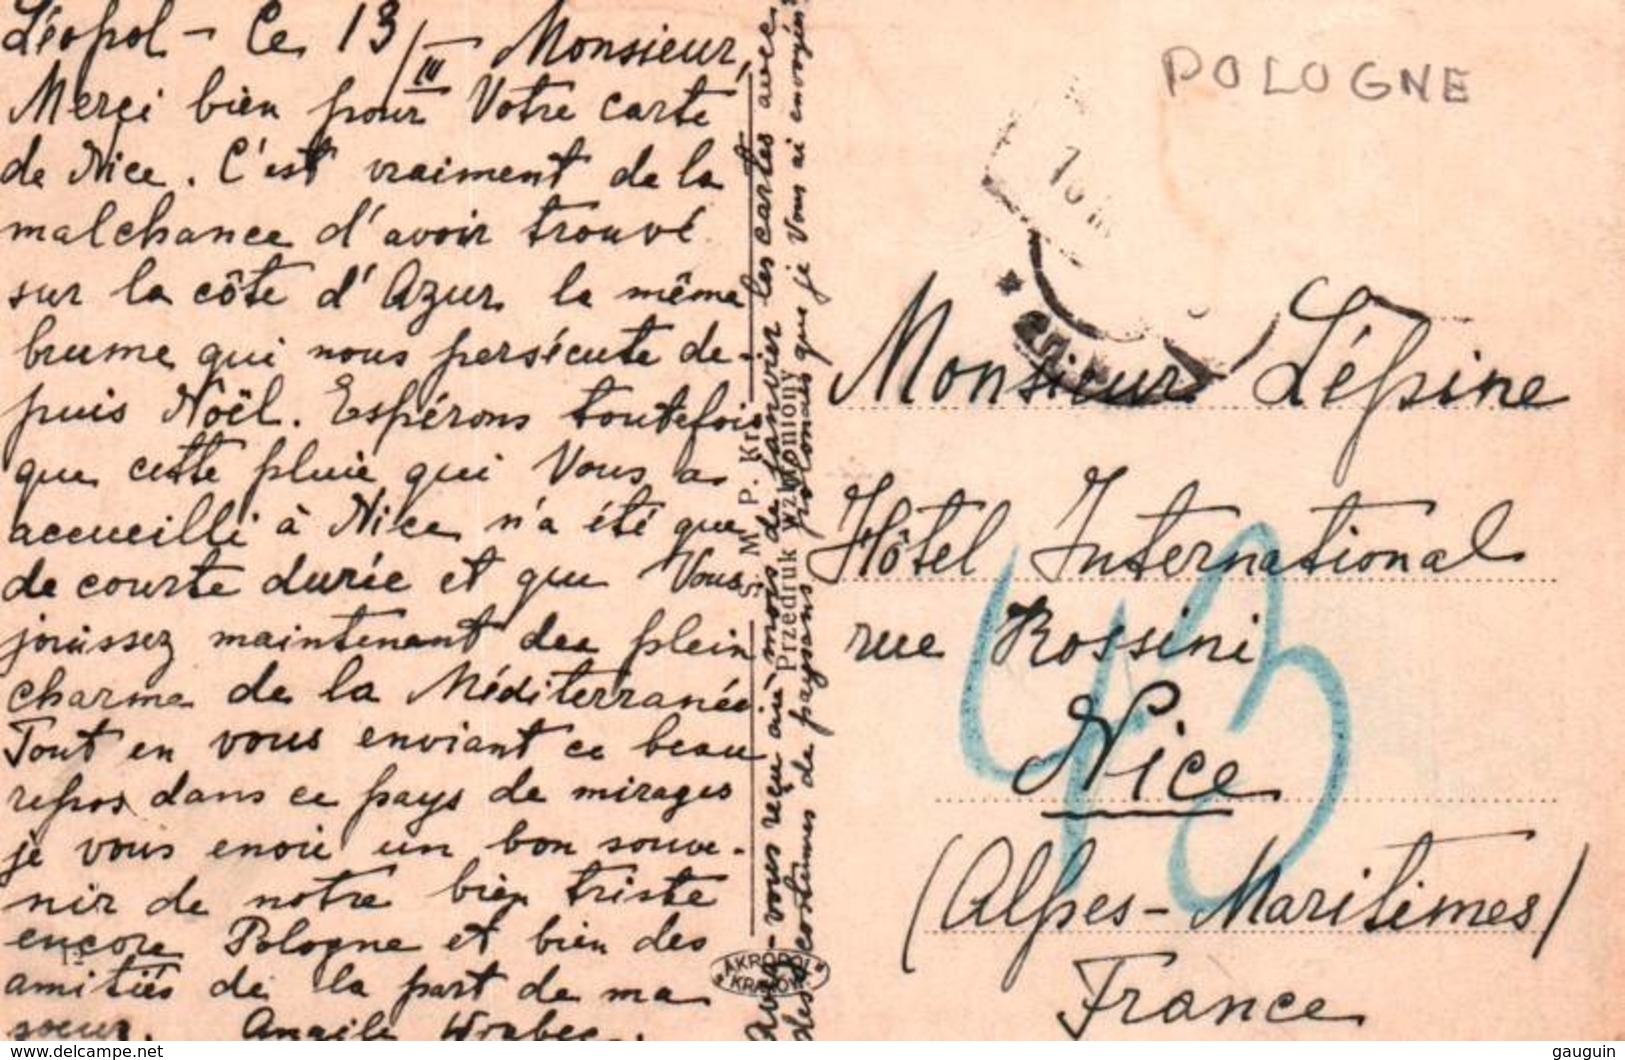 Léopol - Ce 13/III Monsieur,
Merçi bien pour Votre carte
de Nice. C'est vraiment de la
malchance d'avoir trouvé
sur la côte d'Azur la même
brume qui nous persécute de-
puis Noël. Espérons toutefois
que cette pluie qui Vous a
accueilli à Nice n'a été que
de courte durée et que Vous
jouissez maintenant du plein
charme de la Méditerranée
Tout en vous enviant ce beau
repos dans ce pays de mirages
je vous enoie un bon souve-
nir de notre bien triste
encore Pologne et bien des
amitiés de la part de ma
soeur.
12
Avez-vous reçu au mois de janvier les cartes avec
des costumes de paysans polonais que je Vous ai envoyées?
S. M. P. Kr
Przedruk wzbroniony
"AKROPOL"
KRAKÓW
POLOGNE
Monsieur Lépine
Hôtel International
rue Rossini
Nice
(Alpes-Maritimes)
France
43
gauguin © www.delcampe.net